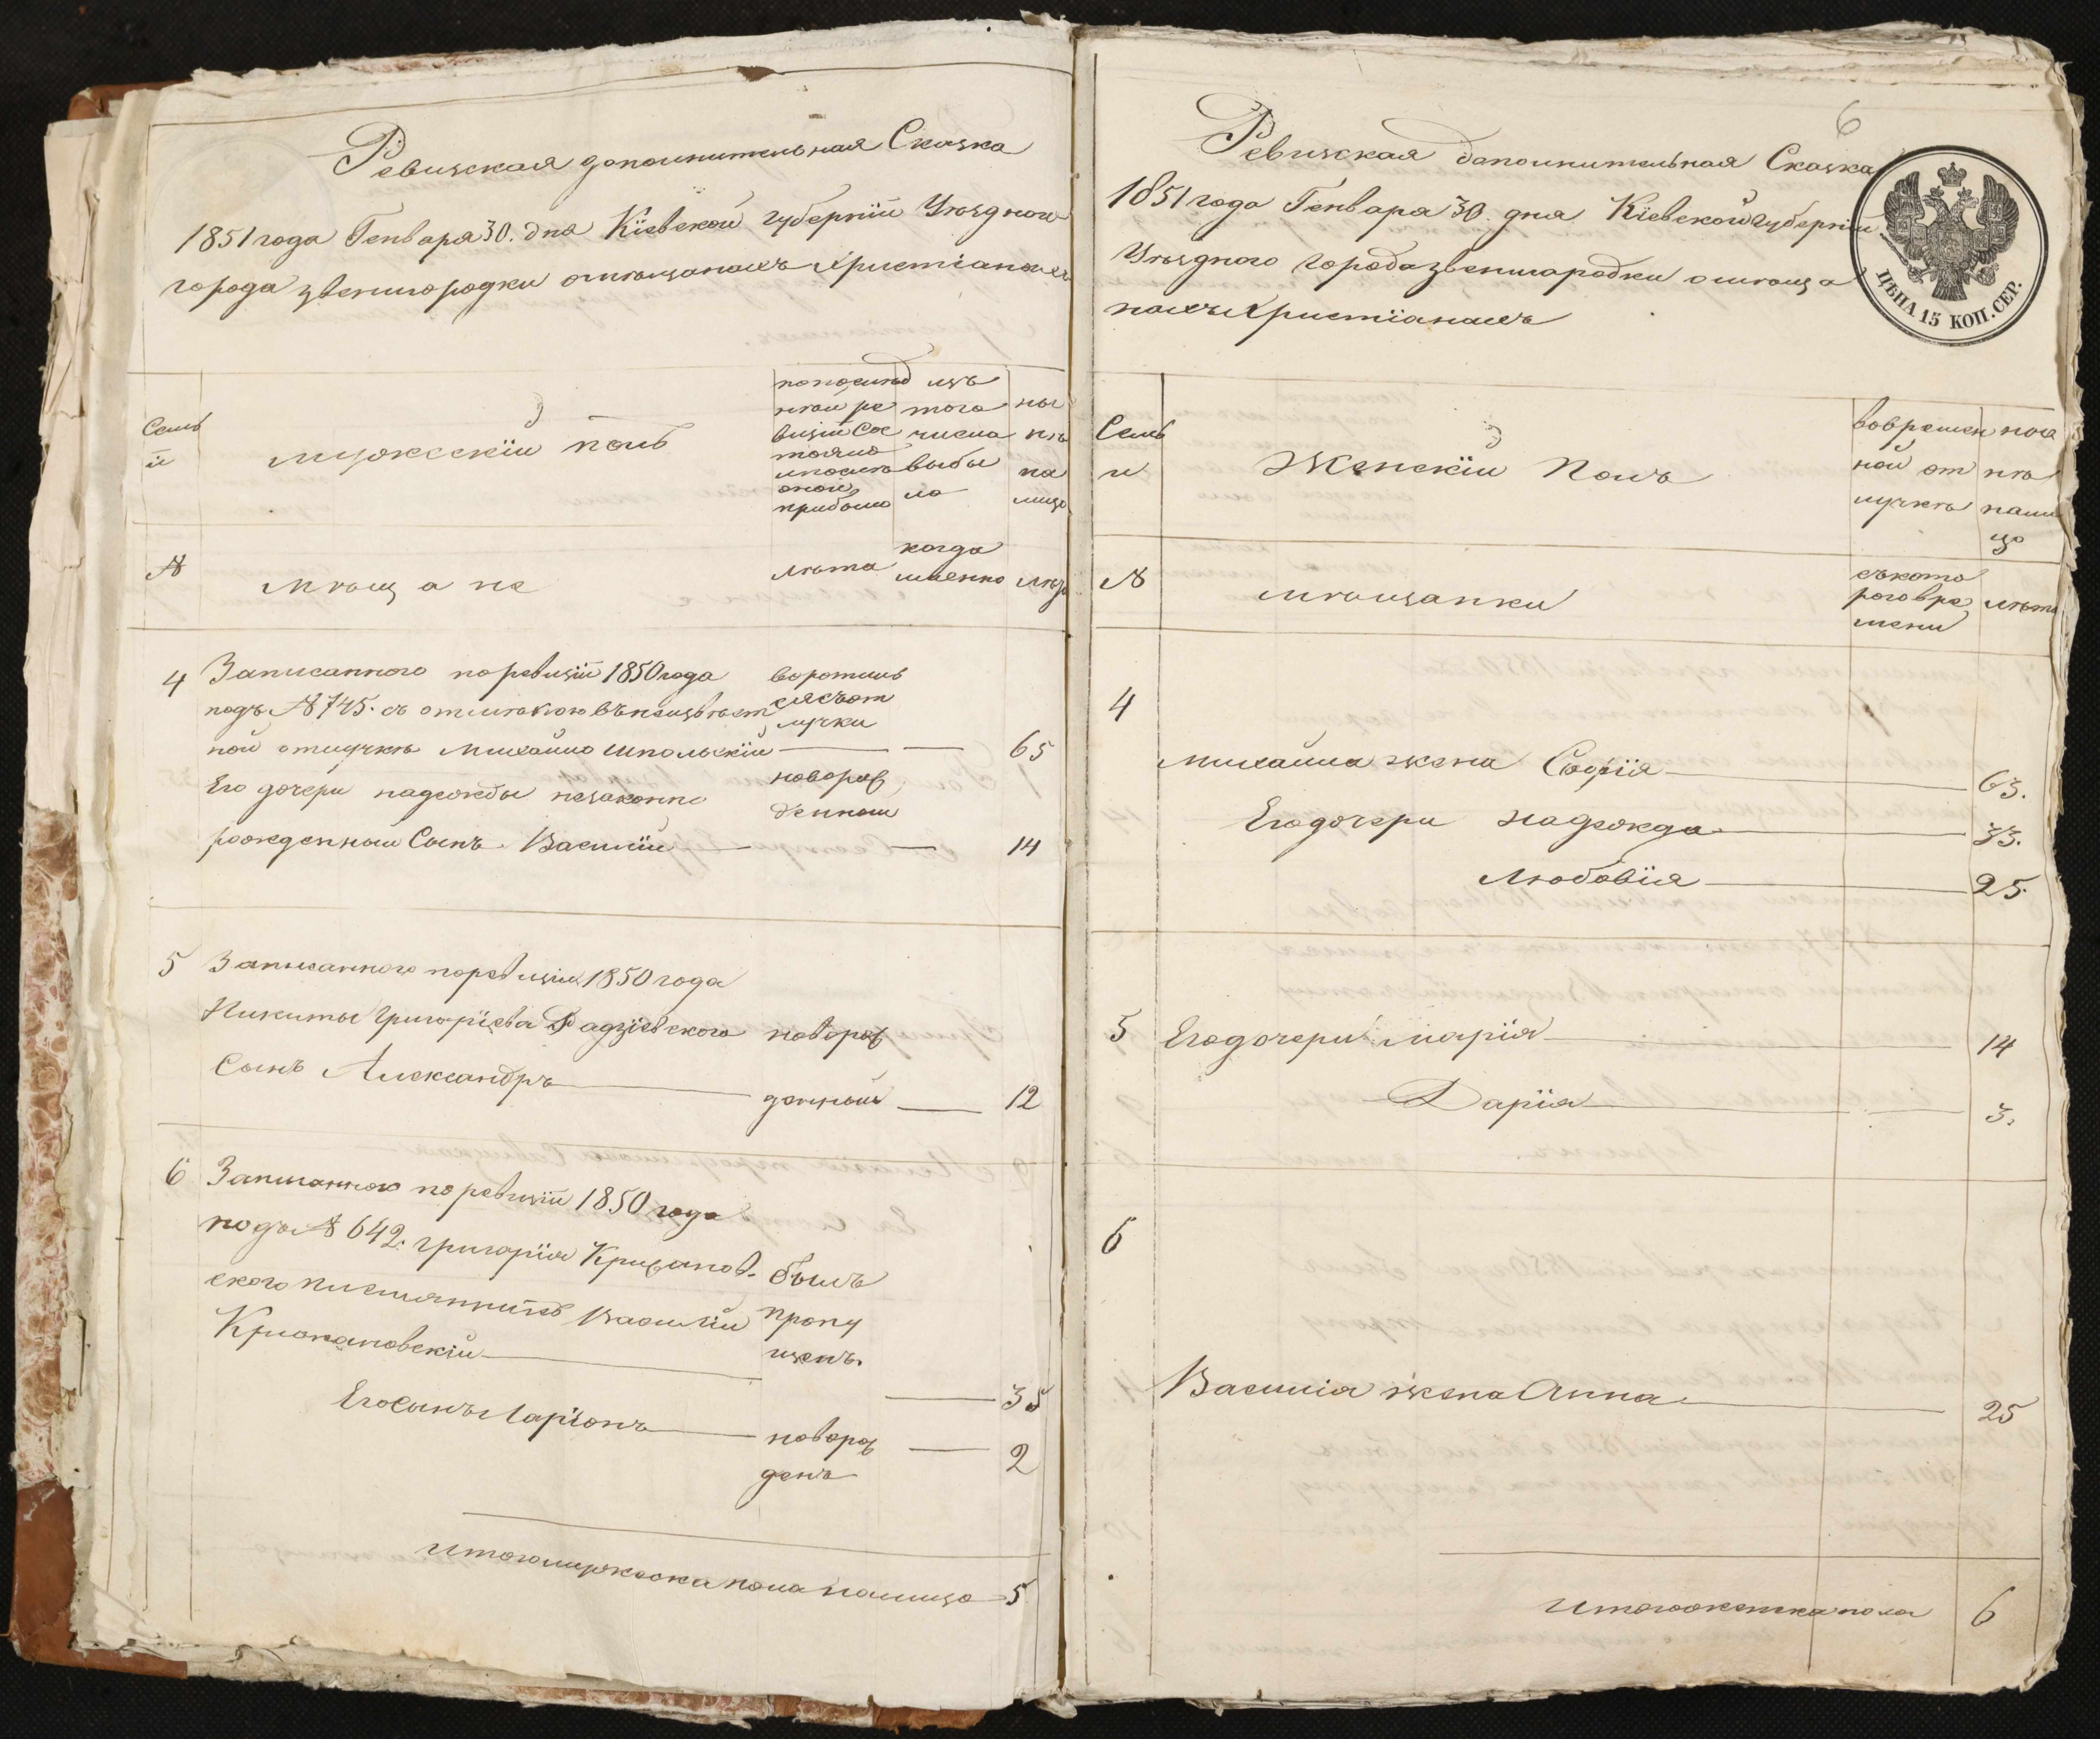 Ревизская дополнительная Сказка
1851 года Генваря 30. дня Кіевской губерніи Уезднаго
города звенигородки о мещанахъ христіанахъ
Семьи
мужескій полъ
по последней ревизіи состояло и после оной прибыло
изъ того числа выбыло
ныне на лицо
№
мещане
лета
когда именно
лета
4 Записанного по ревизіи 1850 года
подъ № 745. съ отметкою въ неизвест
ной отлучке Михайло Шпольскій 65
воротился съ отлучки
Его дочери надежды незаконно
рожденный Сынъ Василій 14
новорожденный
5 Записанного по ревизіи 1850 года
Никиты Григоріева Радзіевского новорож
Сынъ Александръ денный 12
6 Записанного по ревизіи 1850 года
подъ № 642. григорія Крижанов- былъ
ского племянникъ Василій пропу
Крижановскій щенъ. 35
Его сынъ Ларіонъ новорож 2
денъ
итого мужеска пола на лицо 5
6
Ревизская дополнительная Сказка
1851 года Генваря 30. дня Кіевской губерніи
Уезднаго города звенигородки о меща
нахъ христіанахъ
ЦѢНА 15 КОП. СЕР.
Семьи
Женскій Полъ
во временной отлучке
ныне на лицо
№
мещанки
съ котораго времени
лета
4
михайла жена Софія 63.
Его дочери надежда 33.
Любовія 25.
5 Его дочери марія 14
Дарія 3.
6
Василія жена Анна 25
итого женска пола 6